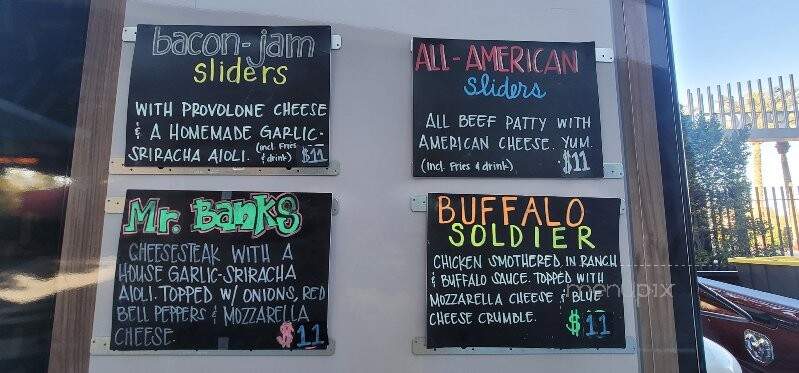 bacon-jam
sliders
WITH PROVOLONE CHEESE
& A HOMEMADE GARLIC-
SRIRACHA AIOLI. (incl. Fries & drink) $11
ALL-AMERICAN
sliders
ALL BEEF PATTY WITH
AMERICAN CHEESE. YUM.
(incl. Fries & drink) $11
Mr. Banks
CHEESESTEAK WITH A
HOUSE GARLIC-SRIRACHA
AIOLI. TOPPED W/ ONIONS, RED
BELL PEPPERS & MOZZARELLA
CHEESE. $11
BUFFALO
SOLDIER
CHICKEN SMOTHERED IN RANCH
& BUFFALO SAUCE. TOPPED WITH
MOZZARELLA CHEESE & BLUE
CHEESE CRUMBLE. $11
menupix